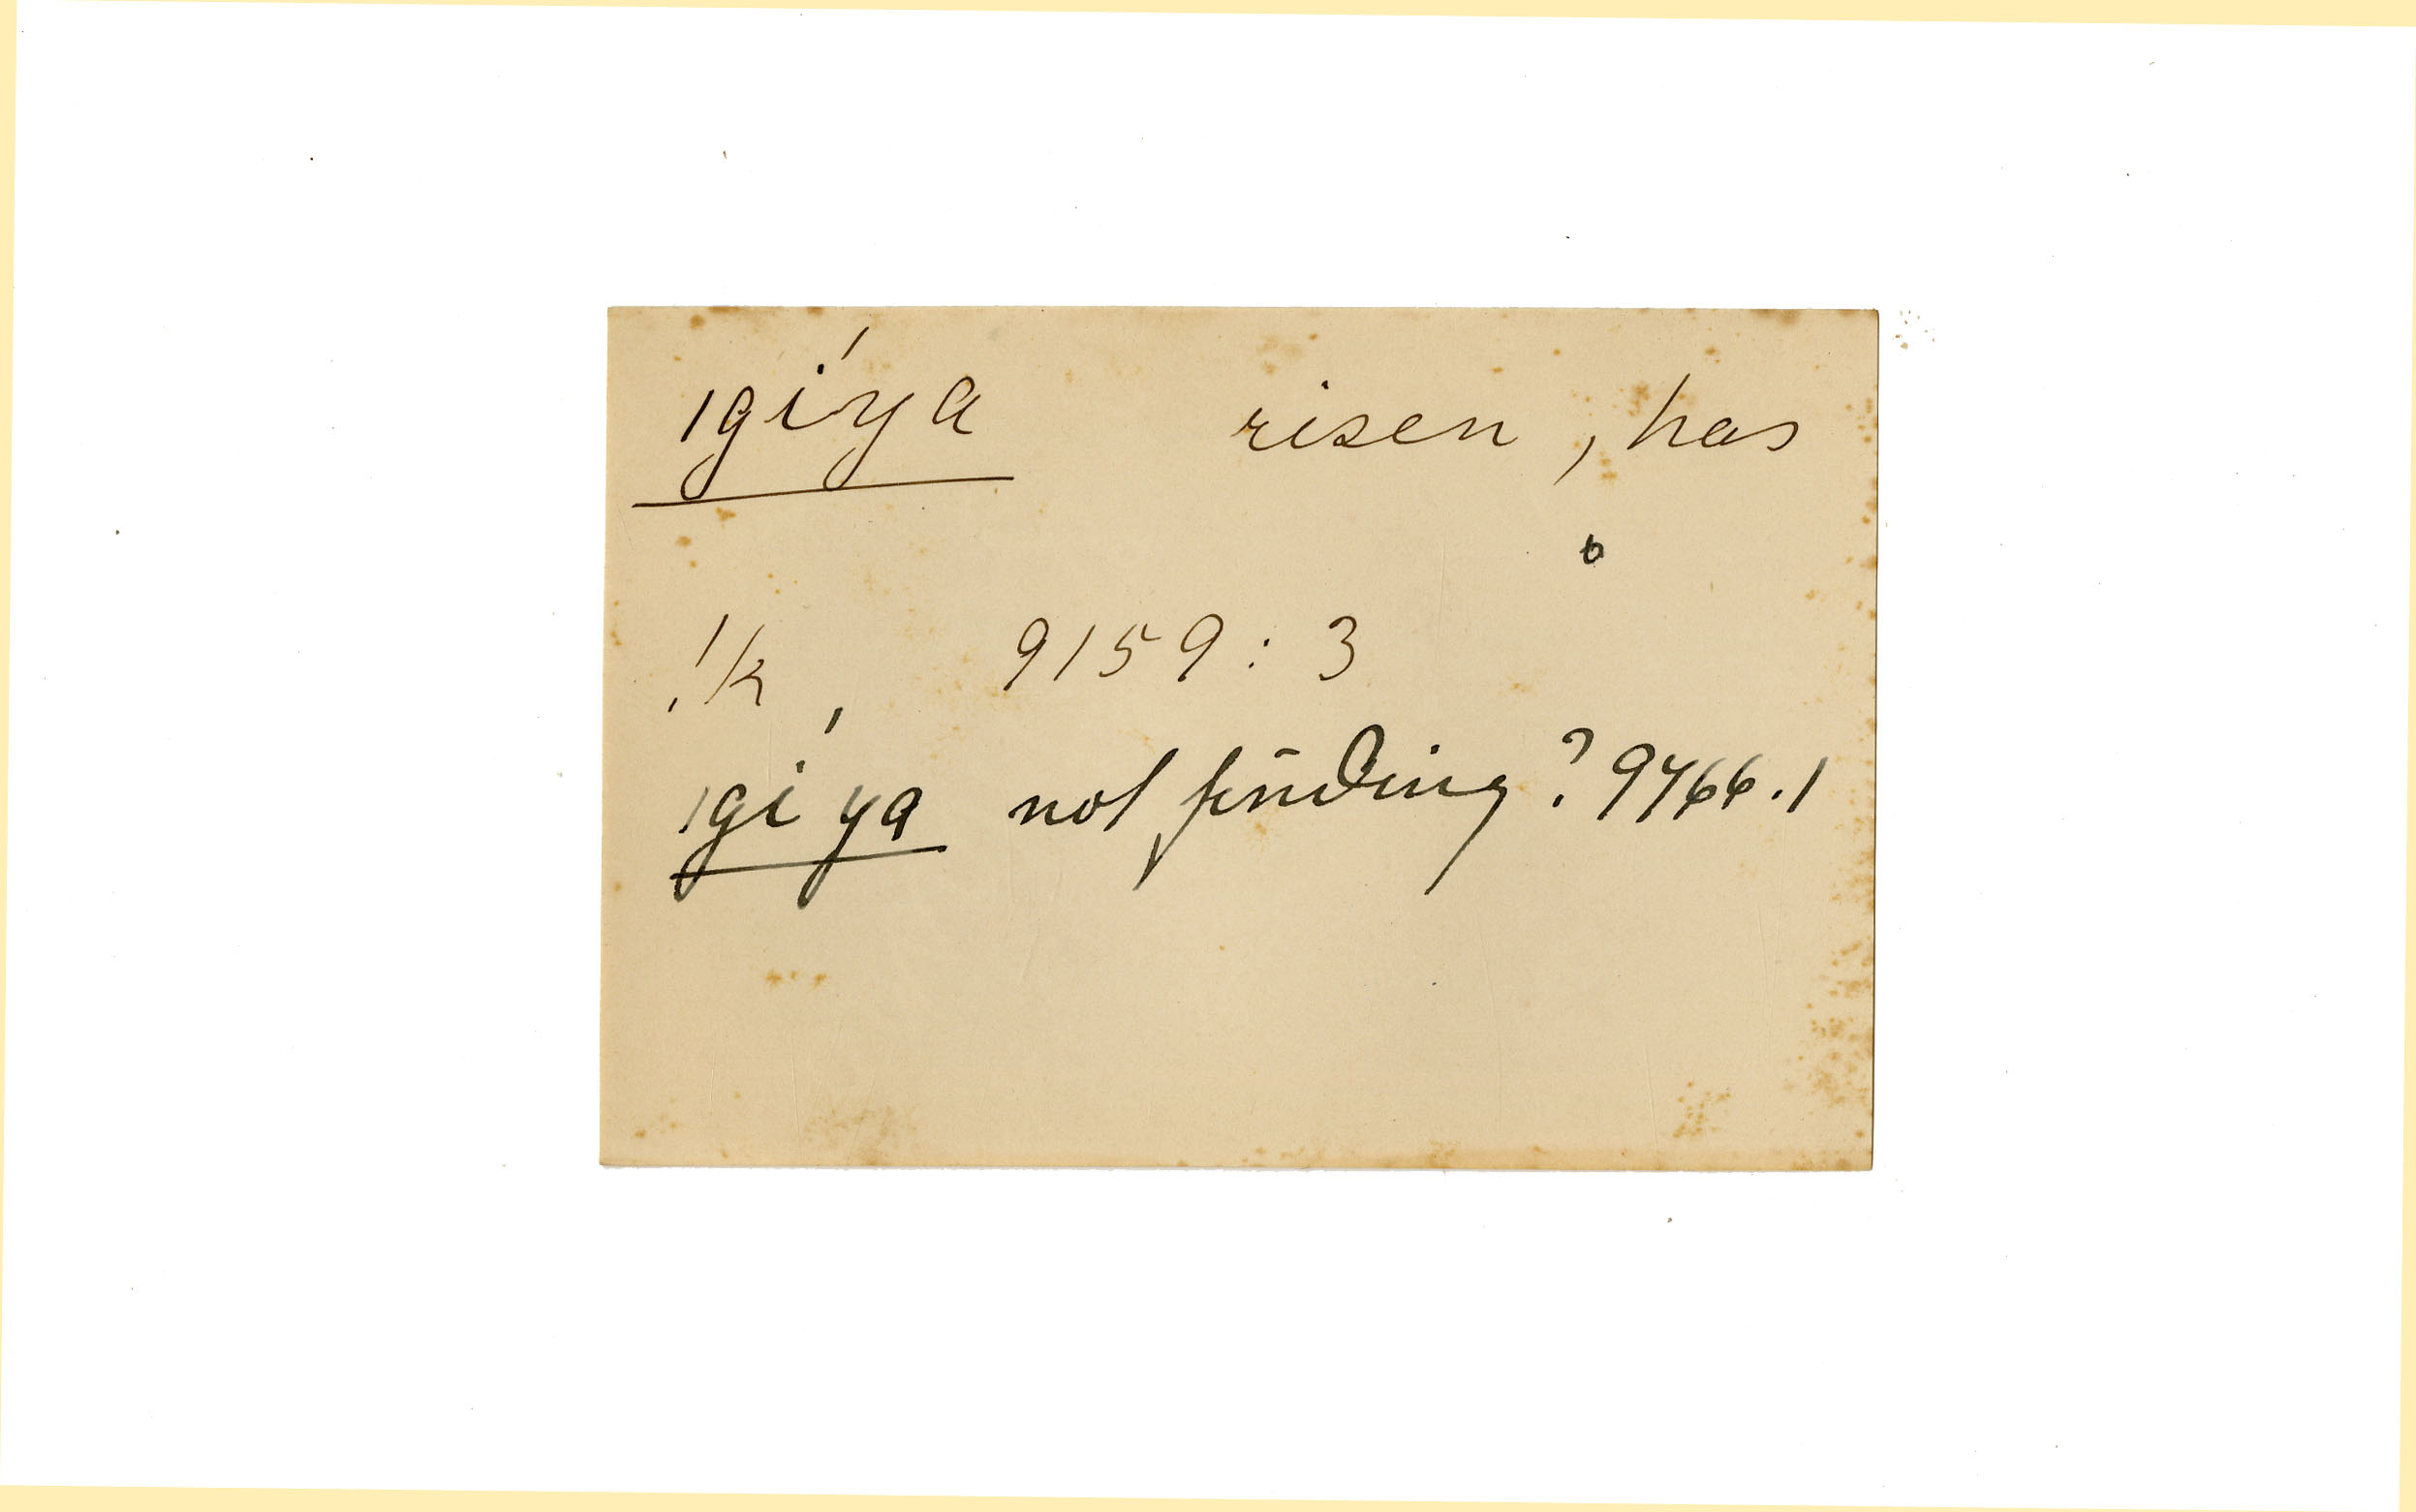 ıgíya risen, has
!k, 9159:3
ıgí ya not finding? 9766.1